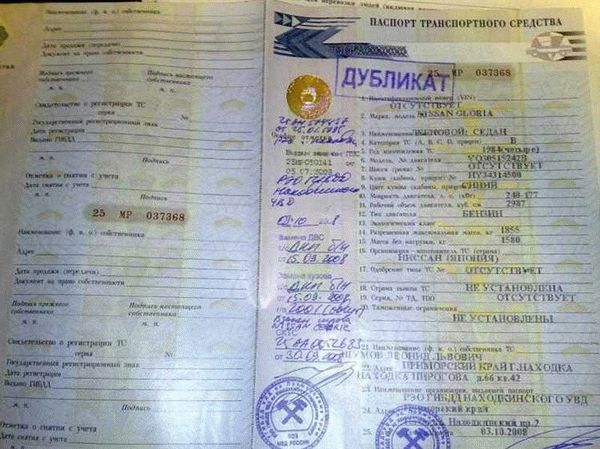 Наименование (ф. и. о.) собственника
Адрес
Дата продажи (передачи)
Документ на право собственности
Подпись прежнего собственника
Подпись настоящего собственника
М. П.
М. П.
Свидетельство о регистрации ТС
серия
№
Государственный регистрационный знак
Дата регистрации
Выдано ГИБДД
М. П.
Подпись
Отметка о снятии с учета
Дата снятия с учета
М. П.
Подпись
25 МР 037368
Наименование (ф. и. о.) собственника
Адрес
Дата продажи (передачи)
Документ на право собственности
Подпись прежнего собственника
Подпись настоящего собственника
М. П.
М. П.
Свидетельство о регистрации ТС
серия
№
Государственный регистрационный знак
Дата регистрации
Выдано ГИБДД
М. П.
Подпись
Отметка о снятии с учета
Дата снятия с учета
ПАСПОРТ ТРАНСПОРТНОГО СРЕДСТВА
ДУБЛИКАТ
25 МР 037368
1. Идентификационный номер (VIN)
ОТСУТСТВУЕТ
2. Марка, модель ТС NISSAN GLORIA
3. Наименование
ЛЕГКОВОЙ: СЕДАН
4. Категория ТС (А, В, С, D, прицеп) В
5. Год изготовления ТС 1984(четыре)
6. Модель, № двигателя
7. Шасси (рама) № ОТСУТСТВУЕТ
8. Кузов (кабина, прицеп) № HY34314508
9. Цвет кузова (кабины, прицепа) СИНИЙ
10. Мощность двигателя, л. с. (кВт) 240-177
11. Рабочий объем двигателя, куб. см 2987
12. Тип двигателя БЕНЗИН
13. Экологический класс
14. Разрешенная максимальная масса, кг 1855
15. Масса без нагрузки, кг 1580
16. Организация - изготовитель ТС (страна)
НИССАН (ЯПОНИЯ)
17. Одобрение типа ТС № ОТСУТСТВУЕТ
18. Страна вывоза ТС НЕ УСТАНОВЛЕНА
19. Серия, № ТД, ТПО ОТСУТСТВУЕТ
20. Таможенные ограничения
НЕ УСТАНОВЛЕНЫ
21. Наименование (ф. и. о.) собственника ТС
ШУМОВ ЛЕОНИД ЛЬВОВИЧ
22. Адрес ПРИМОРСКИЙ КРАЙ Г.НАХОДКА
НАХОДКА ПИРОГОВА д.66 кв.42
23. Наименование организации, выдавшей паспорт
РЭО ГИБДД НАХОДКИНСКОГО УВД
24. Адрес Приморский край
Находкинский пр.2
25. 03.10.2008
Особые отметки
РЭО ГИБДД
Находкинского
УВД
Замена ДВС
ДКП б/н
15.09.2008
Замена кузова
ДКП б/н
15.09.2008
МВД РОССИИ